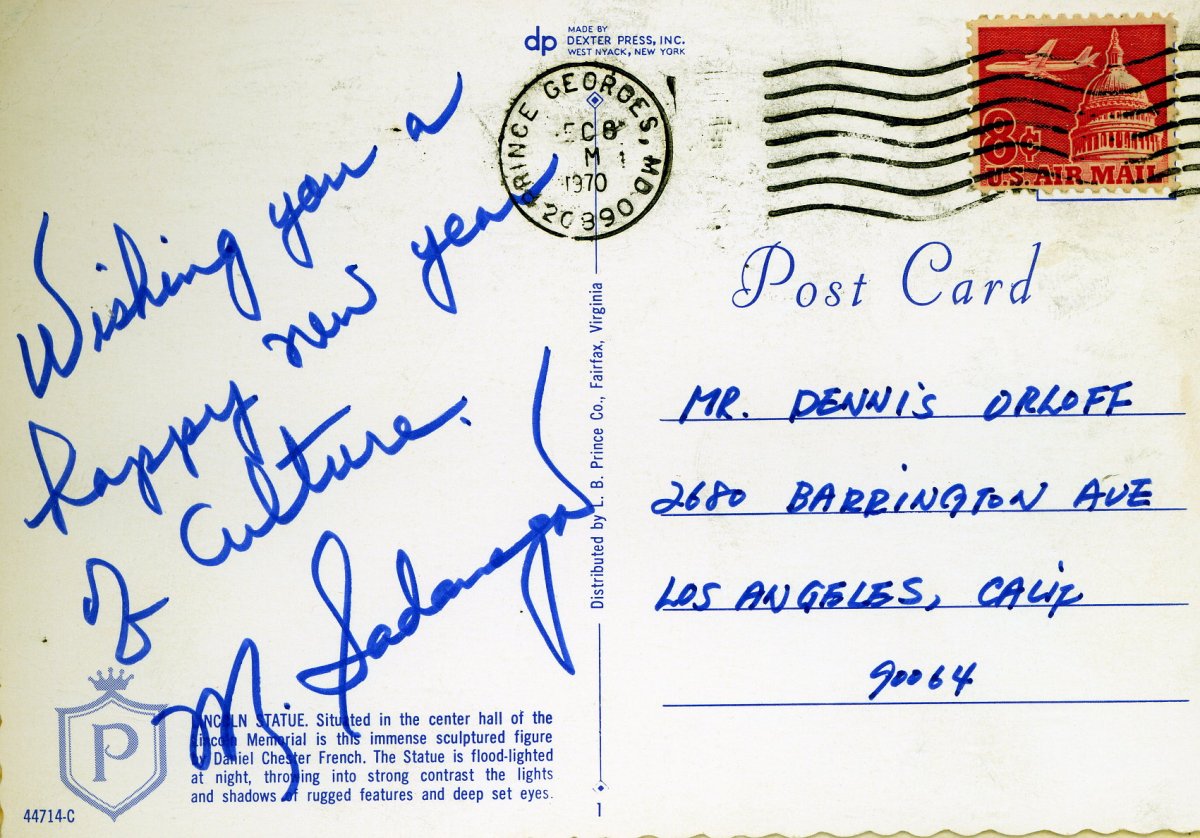 dp MADE BY
DEXTER PRESS, INC.
WEST NYACK, NEW YORK
PRINCE GEORGES, MD. 20890
1970
8¢
U.S. AIR MAIL
Wishing you a
happy new year
of Culture.
M. Sadanaga
Post Card
MR. DENNIS ORLOFF
2680 BARRINGTON AVE
LOS ANGELES, CALIF
90064
Distributed by L. B. Prince Co., Fairfax, Virginia
P
LINCOLN STATUE. Situated in the center hall of the
Lincoln Memorial is this immense sculptured figure
by Daniel Chester French. The Statue is flood-lighted
at night, throwing into strong contrast the lights
and shadows of rugged features and deep set eyes.
44714-C
1